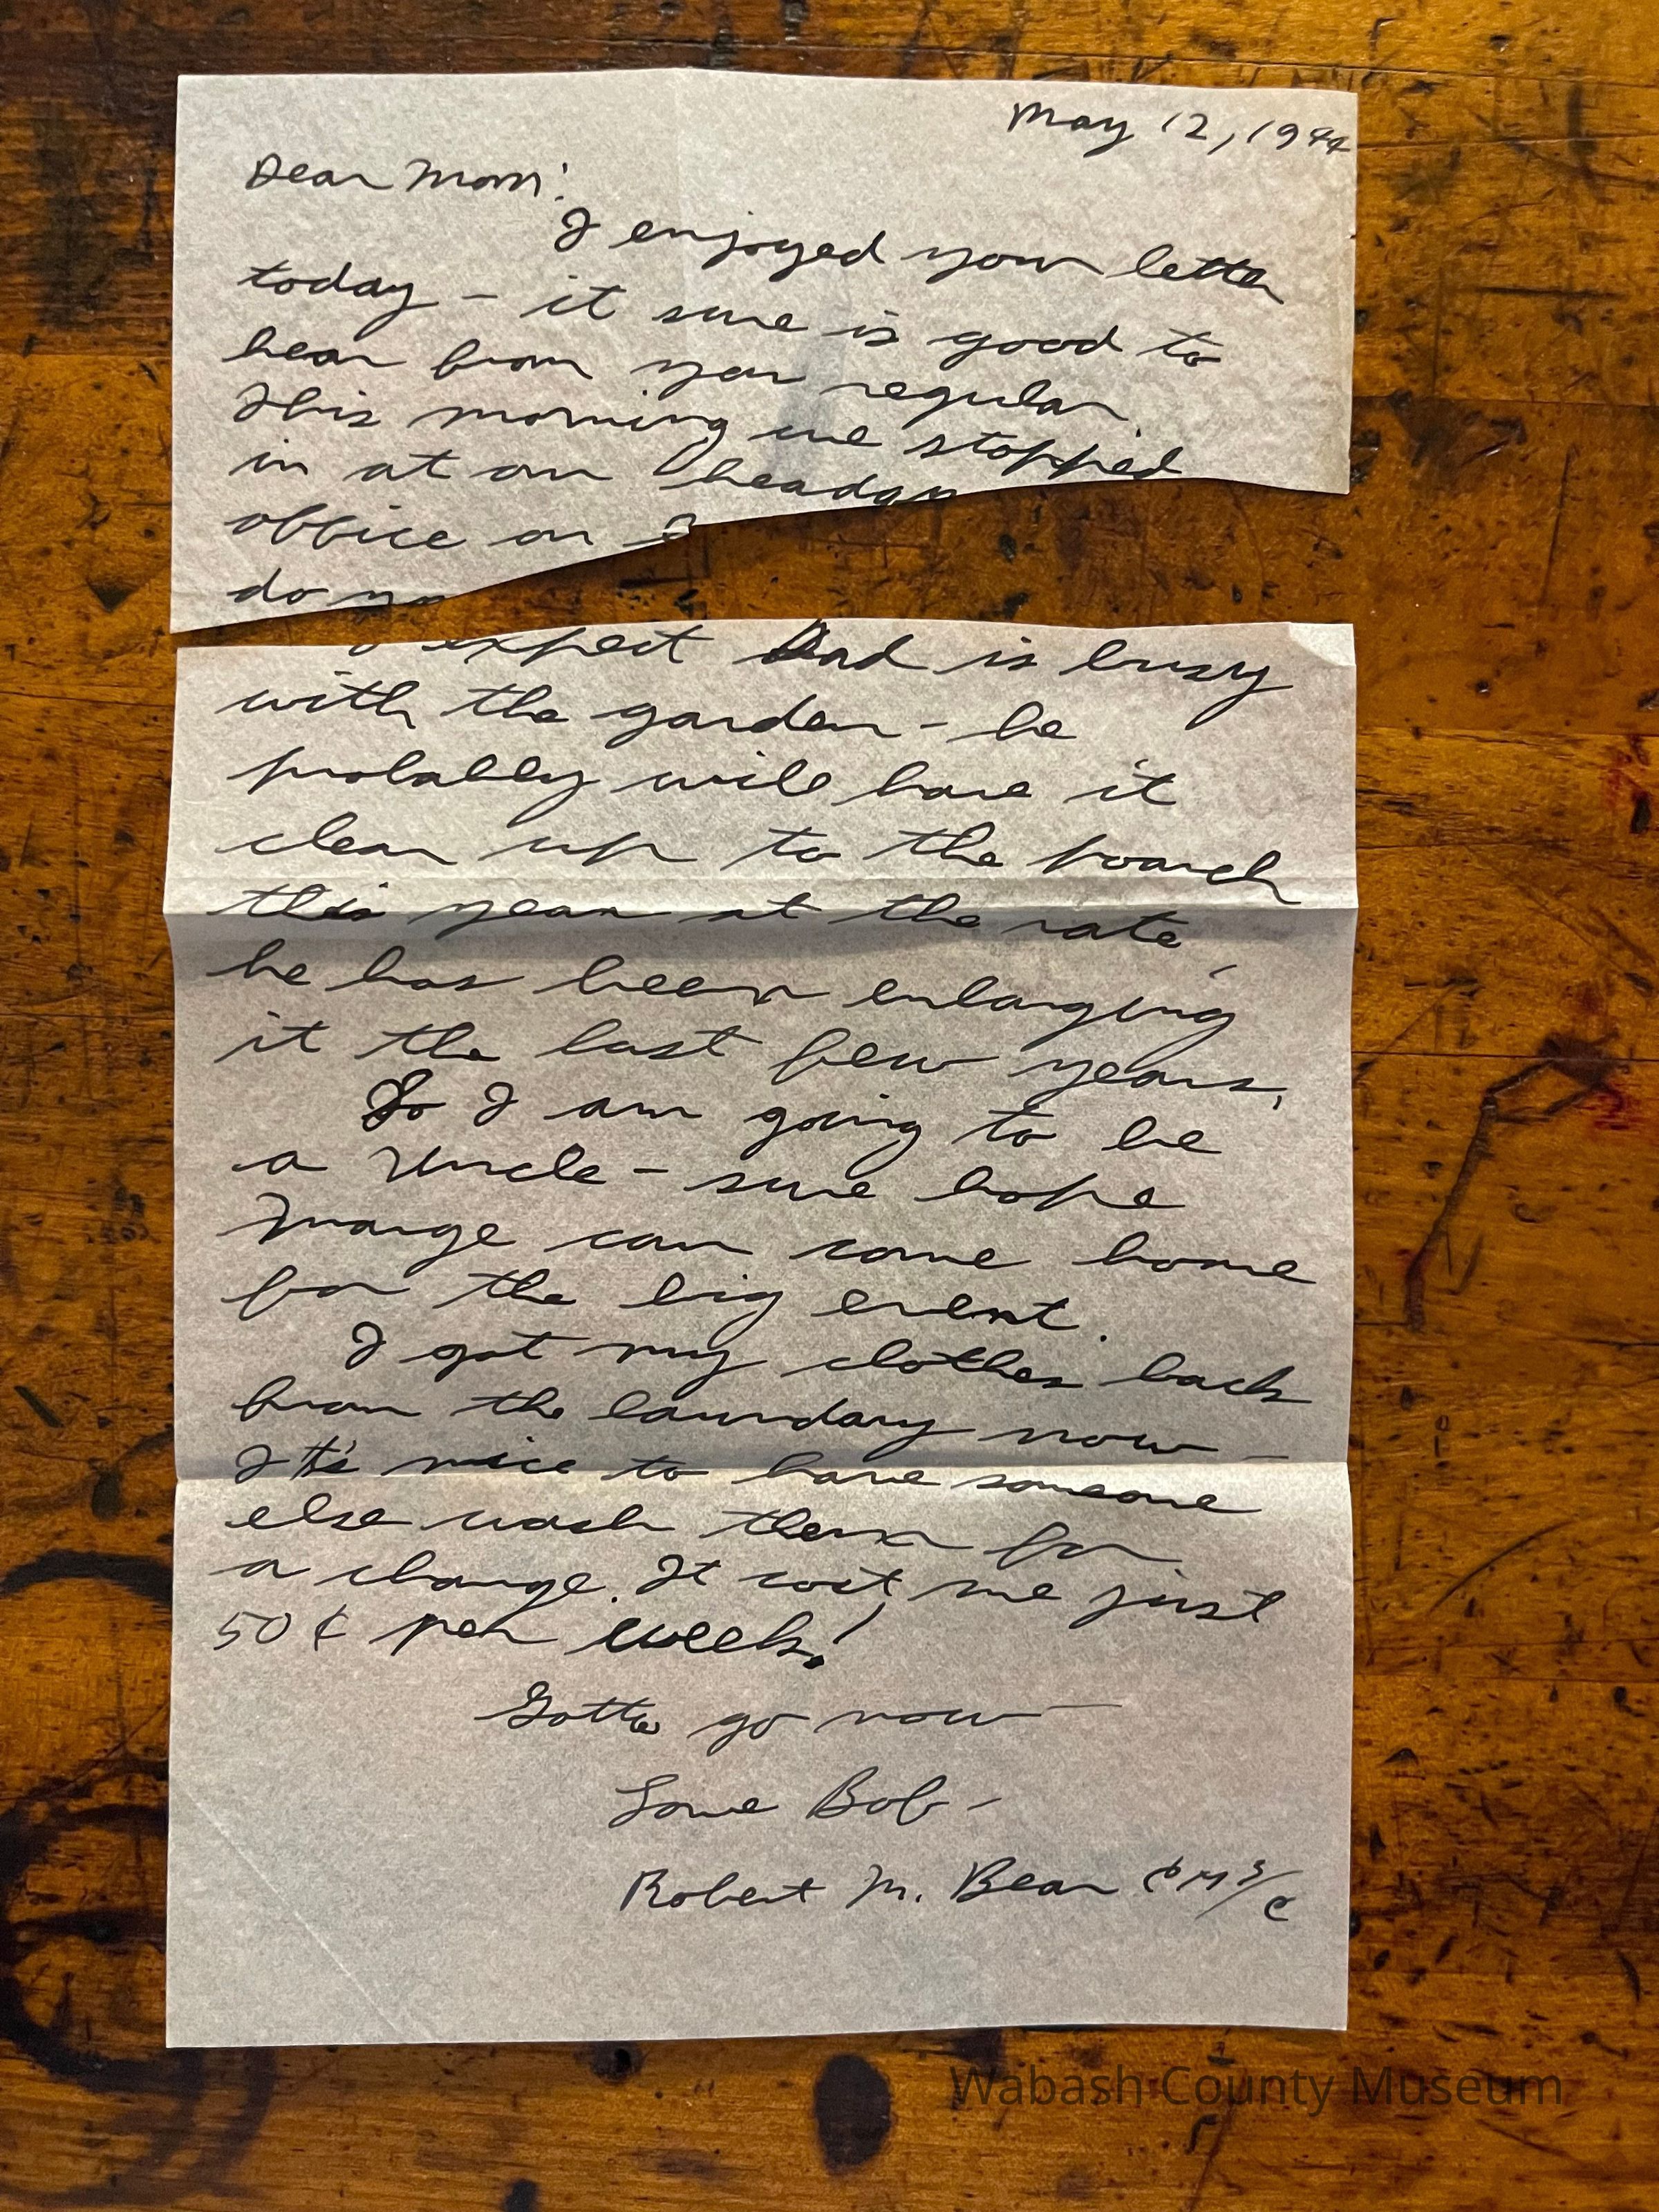 May 12, 1944
Dear Mom:
I enjoyed your letter
today - it sure is good to
hear from you regular.
This morning we stopped
in at our headqu
office on
do yo
I expect Dad is busy
with the garden - he
probably will have it
clear up to the poarch
this year at the rate
he has been enlarging
it the last few years.
So I am going to be
a Uncle - sure hope
Marge can come home
for the big event.
I got my clothes back
from the laundary now -
It's nice to have someone
else wash them for
a change. It cost me just
50¢ per week!
Gotta go now —
Love Bob -
Robert M. Bear 3/c
Wabash County Museum